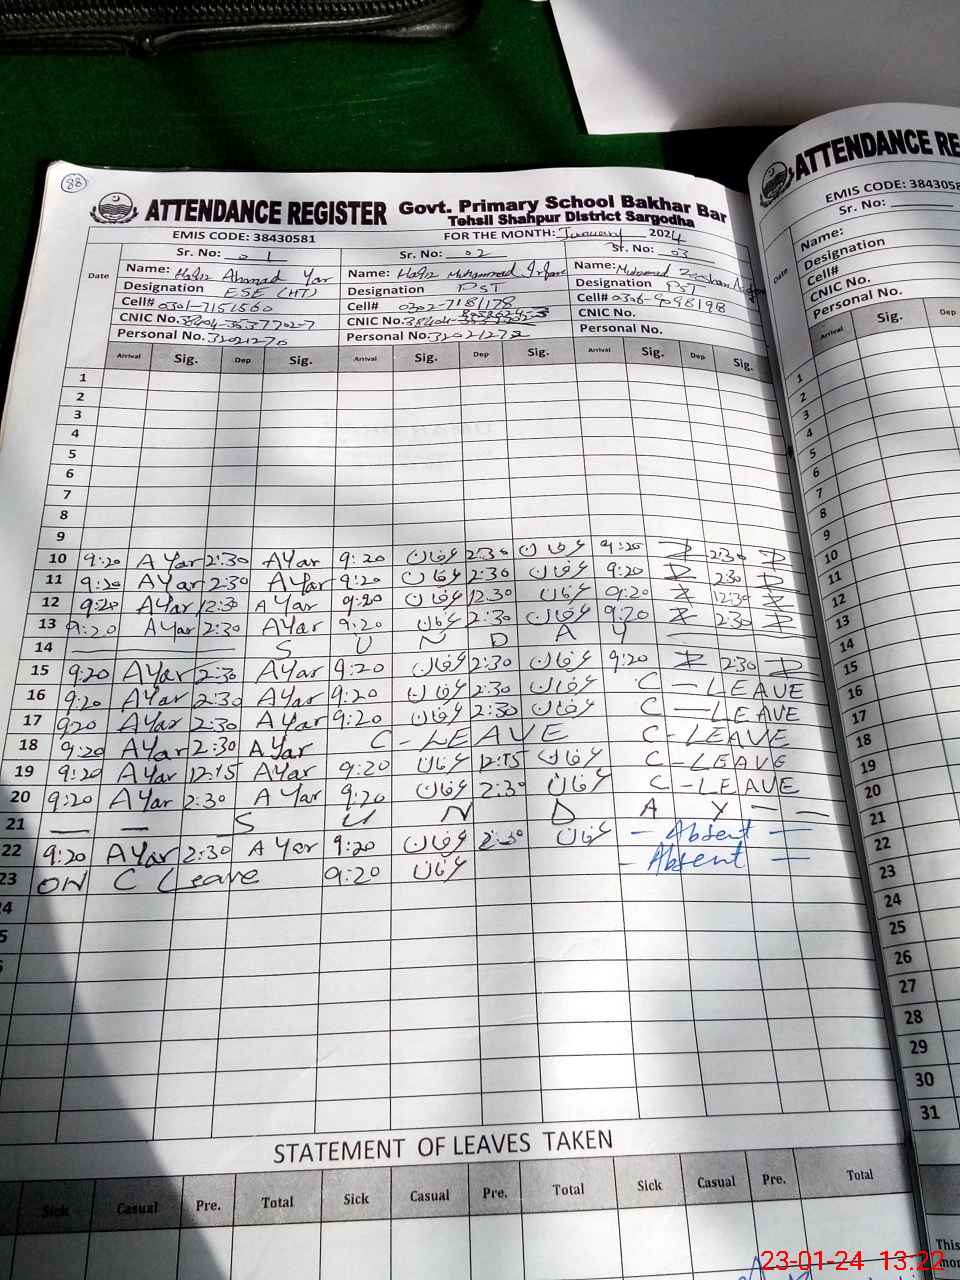 88
ATTENDANCE REGISTER Govt. Primary School Bakhar Bar
Tehsil Shahpur District Sargodha
EMIS CODE: 38430581 FOR THE MONTH: January 2024
Sr. No: 01 Sr. No: 02 Sr. No: 03
Date Name: Hafiz Ahmad Yar Name: Hafiz Muhammad Irfan Name: Muhammad Zeeshan
Designation ESE (HT) Designation PST Designation PST
Cell# 0301-7151560 Cell# 0302-7181178 Cell# 0306-9098198
CNIC No. 38404-3537702-7 CNIC No. 38404- CNIC No.
Personal No. 32021270 Personal No. 32021272 Personal No.
Arrival Sig. Dep Sig. Arrival Sig. Dep Sig. Arrival Sig. Dep Sig.
1
2
3
4
5
6
7
8
9
10 9:20 AYar 2:30 AYar 9:20 عرفان 2:30 عرفان 9:20 Z 2:30 Z
11 9:20 AYar 2:30 AYar 9:20 عرفان 2:30 عرفان 9:20 Z 2:30 Z
12 9:20 AYar 12:30 AYar 9:20 عرفان 12:30 عرفان 9:20 Z 12:30 Z
13 9:20 AYar 2:30 AYar 9:20 عرفان 2:30 عرفان 9:20 Z 2:30 Z
14 — S U N D A Y —
15 9:20 AYar 2:30 AYar 9:20 عرفان 2:30 عرفان 9:20 Z 2:30 Z
16 9:20 AYar 2:30 AYar 9:20 عرفان 2:30 عرفان C-LEAVE
17 9:20 AYar 2:30 AYar 9:20 عرفان 2:30 عرفان C-LEAVE
18 9:20 AYar 2:30 AYar C-LEAVE C-LEAVE
19 9:20 AYar 12:15 AYar 9:20 عرفان 12:15 عرفان C-LEAVE
20 9:20 AYar 2:30 AYar 9:20 عرفان 2:30 عرفان C-LEAVE
21 — — S U N D A Y — —
22 9:20 AYar 2:30 AYar 9:20 عرفان 2:30 عرفان — Absent —
23 ON C Leave 9:20 عرفان — Absent —
4
5
STATEMENT OF LEAVES TAKEN
Sick Casual Pre. Total Sick Casual Pre. Total Sick Casual Pre. Total
ATTENDANCE RE
EMIS CODE: 3843058
Sr. No:
Date Name:
Designation
Cell#
CNIC No.
Personal No.
Arrival Sig. Dep
1
2
3
4
5
6
7
8
9
10
11
12
13
14
15
16
17
18
19
20
21
22
23
24
25
26
27
28
29
30
31
This
23-01-24 13:22